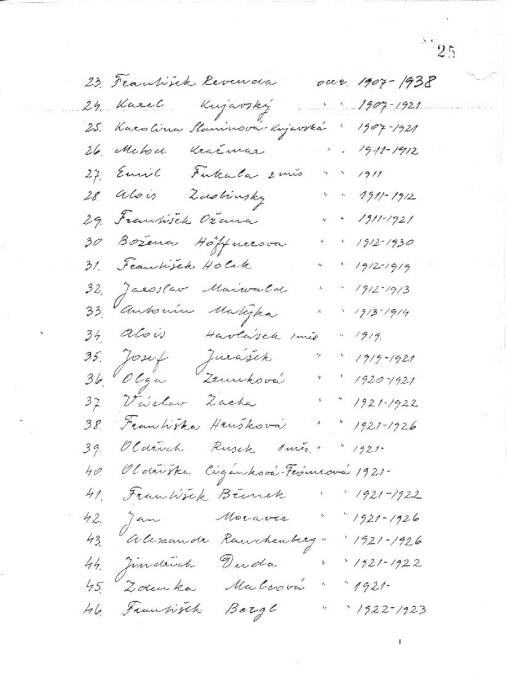 25
23. František Revenda od r. 1907-1938
24. Karel Kujavský " " 1907-1921
25. Karolina Staninová-Kujavská " 1907-1921
26. Metod Kračmar " " 1911-1912
27. Emil Fukala 2 měs " " 1911
28 Alois Zdobinsky " " 1911-1912
29. František Ožana " " 1911-1921
30 Božena Höffnerova " " 1912-1930
31. František Holek " " 1912-1919
32. Jaroslav Maiwald " " 1912-1913
33. Antonín Matějka " " 1913-1914
34. Alois Havlásek 1 měs " 1919.
35. Josef Jurášek " " 1919-1921
36. Olga Zemková " " 1920-1921
37 Václav Zacha " " 1921-1922
38. Františka Hrušková " " 1921-1926
39. Oldřich Rusek 1 měs. " " 1921-
40. Oldřiška Cigánková- 1921-
41. František Březek " " 1921-1922
42. Jan Moravec " " 1921-1926
43. Alexandr Rauchenberg " " 1921-1926
44. Jindřich Duda " " 1921-1922
45. Zdenka Malcová " " 1921-
46. František Bargl " " 1922-1923